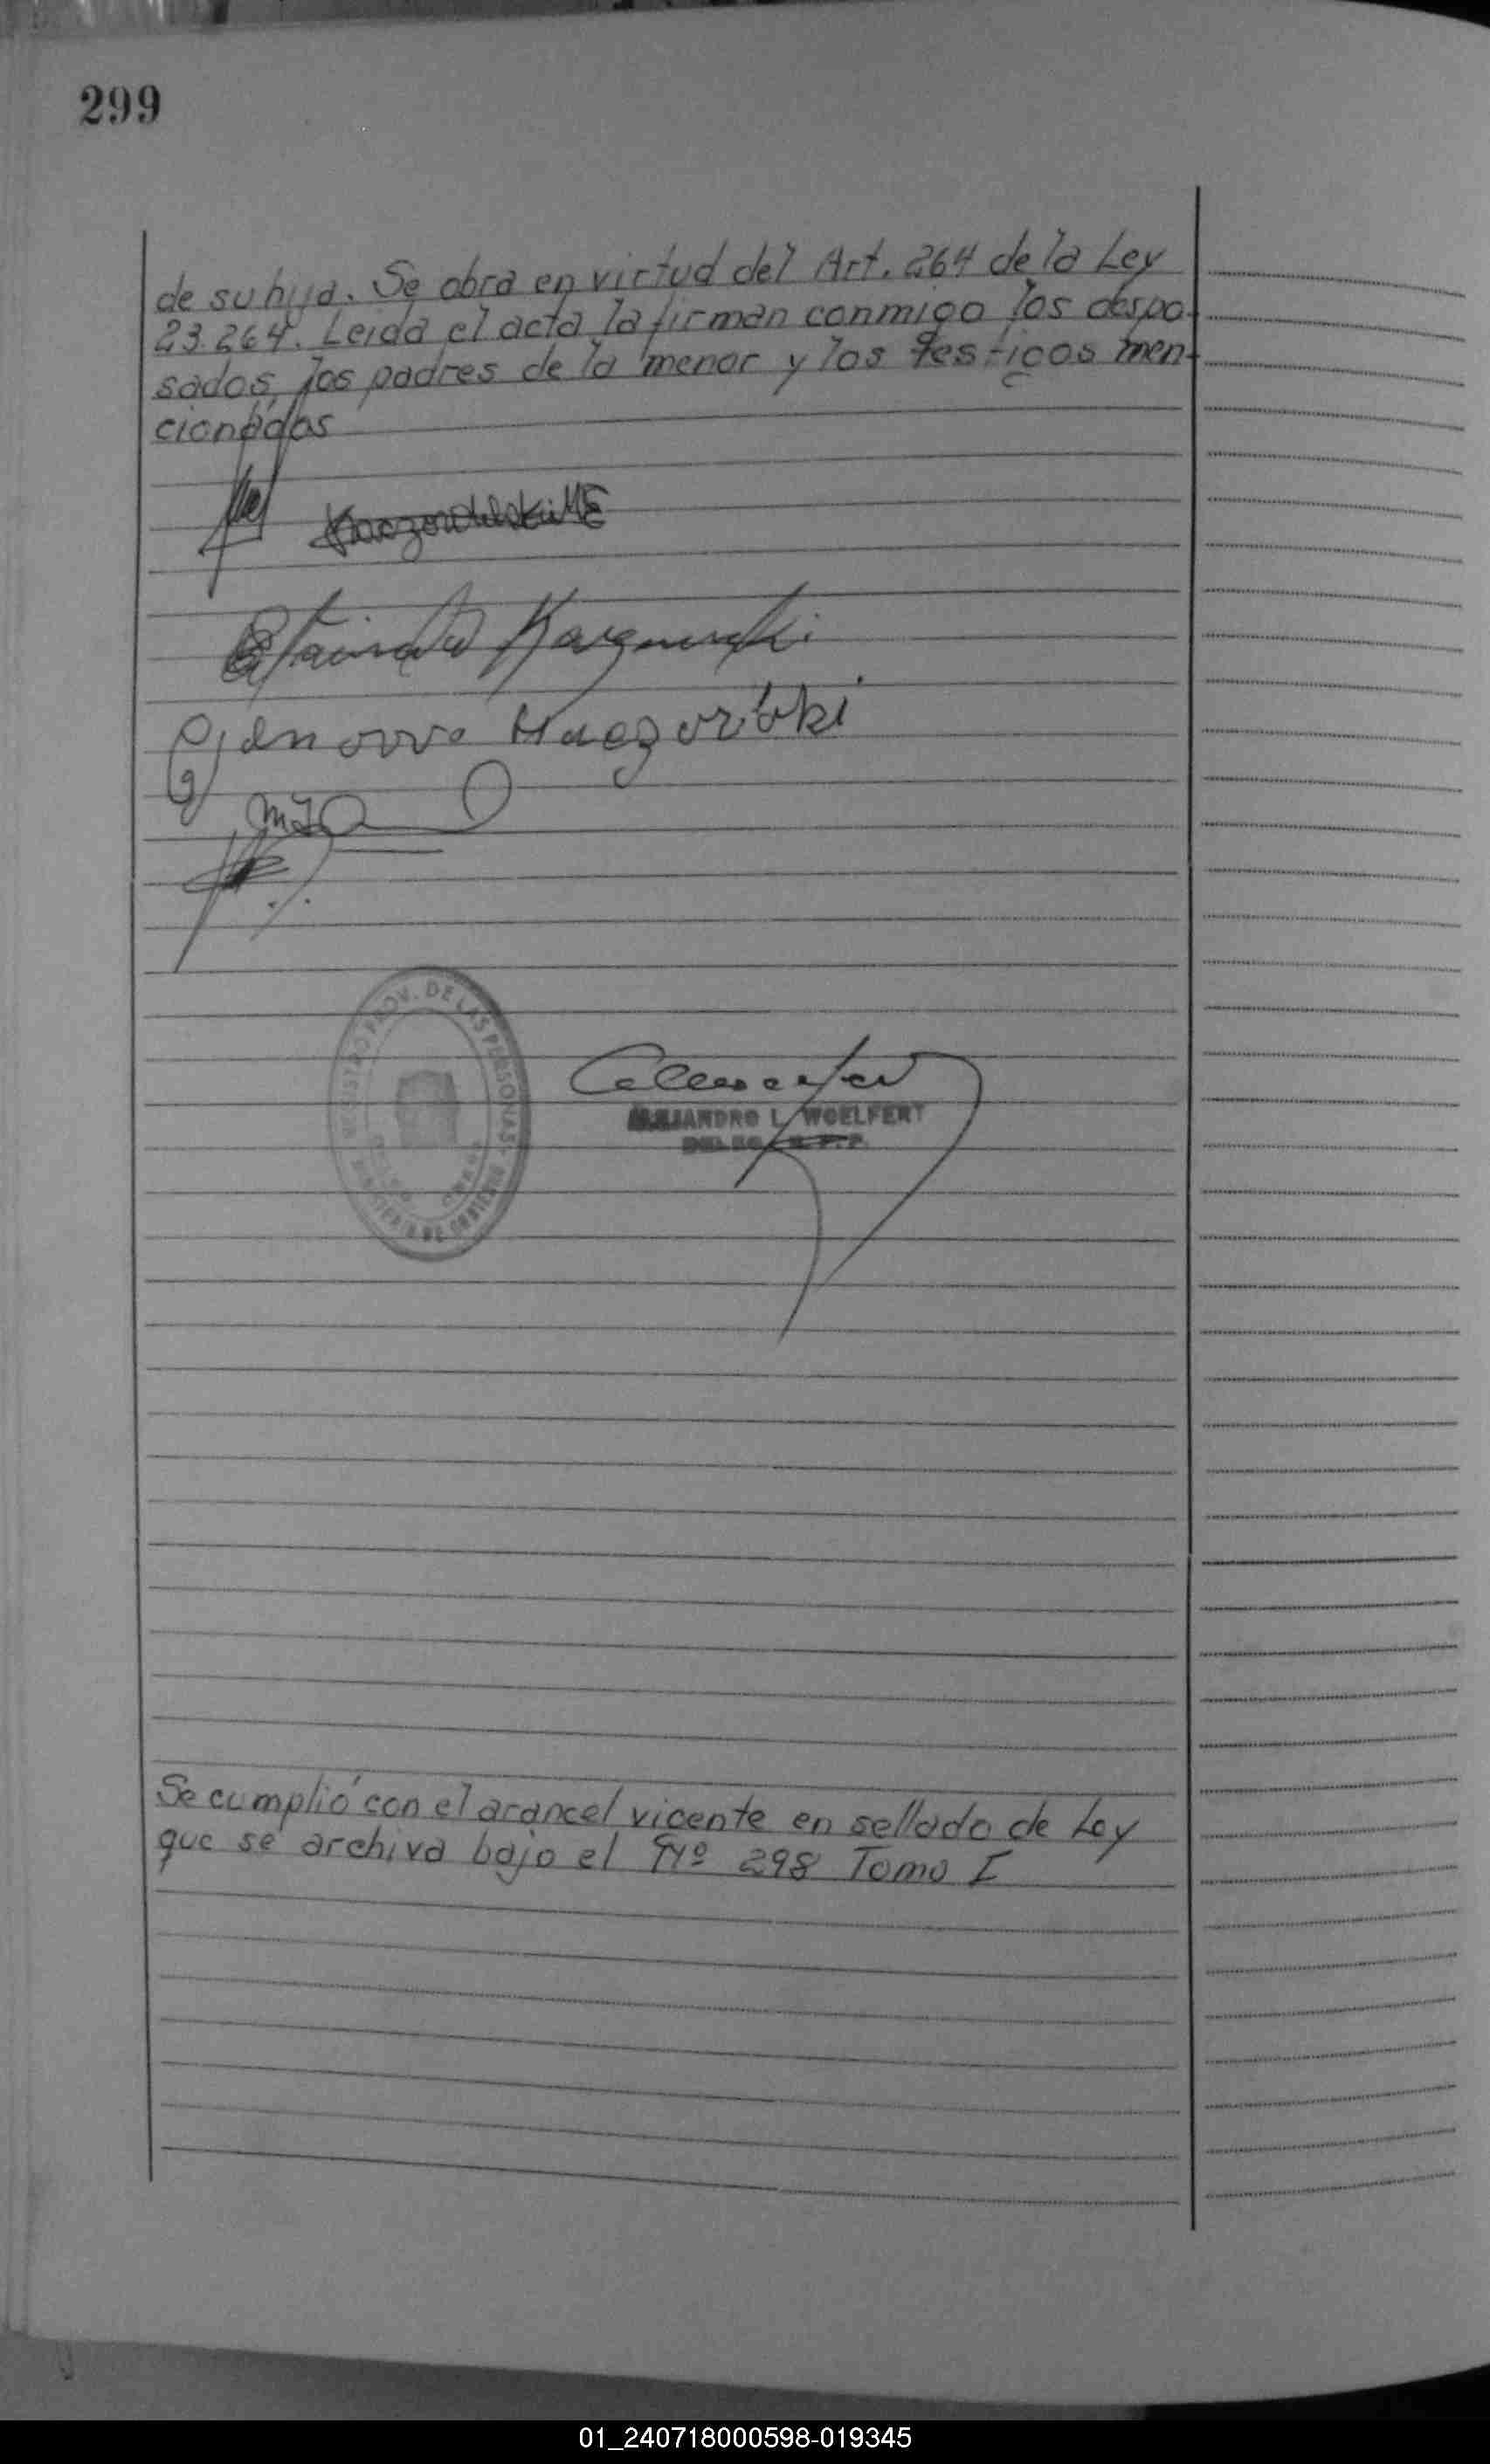 299
de su hija. Se obra en virtud del Art. 264 de la Ley
23.264. Leida el acta la firman conmigo los despo-
sados, los padres de la menor y los testigos men-
cionados
REGISTRO PROV. DE LAS PERSONAS
MINISTERIO DE GOBIERNO
ALEJANDRO L. WOELFERT
Se cumplió con el arancel vigente en sellado de Ley
que se archiva bajo el Nº 298 Tomo I
01_240718000598-019345